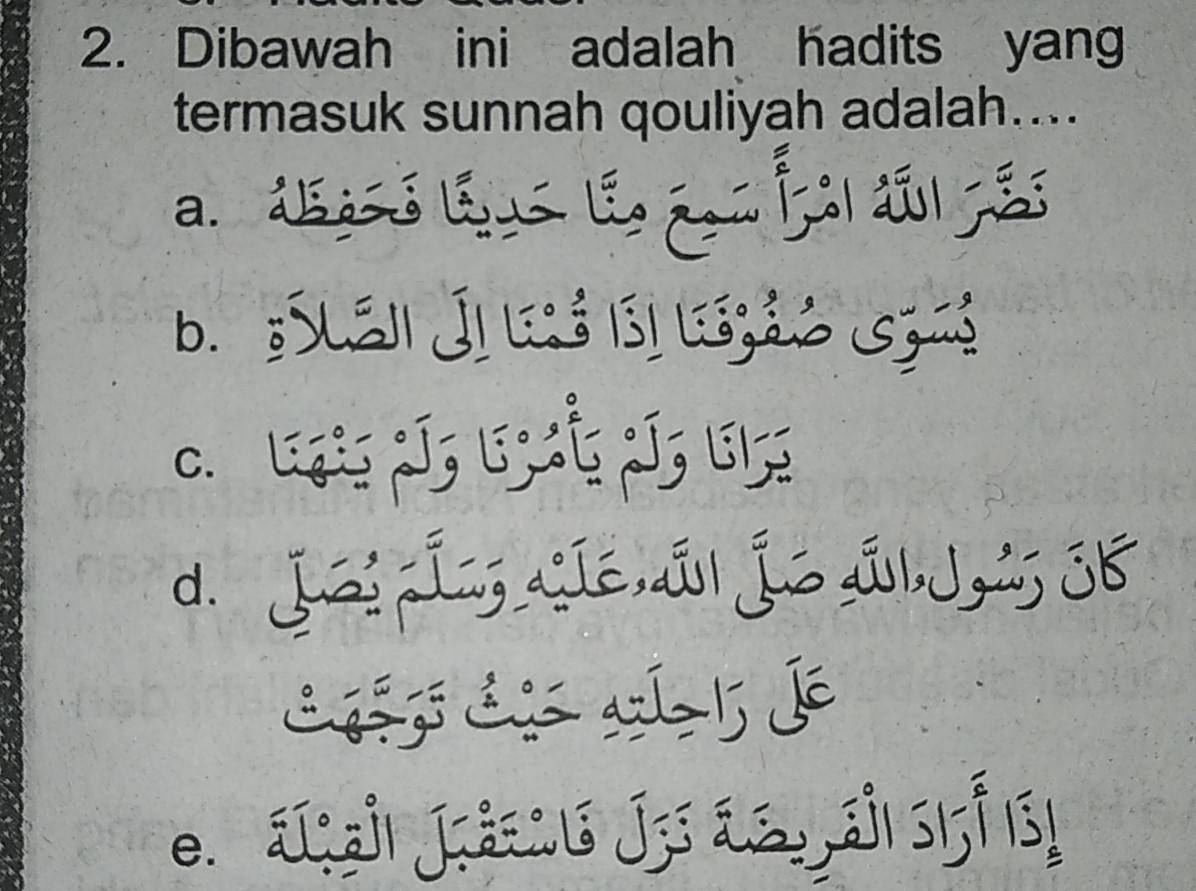 2. Dibawah ini adalah hadits yang
termasuk sunnah qouliyah adalah....
a. نَضَّرَ اللَّهُ امْرَأً سَمِعَ مِنَّا حَدِيثًا فَحَفِظَهُ
b. يُسَوِّى صُفُوْفَنَا إِذَا قُمْنَا إِلَى الصَّلَاةِ
c. يَرَانَا وَلَمْ يَأْمُرْنَا وَلَمْ يَنْهَنَا
d. كَانَ رَسُول،اللَّهِ صَلَّى اللَّه،عَلَيْهِ وَسَلَّمَ يُصَلِّى
عَلَى رَاحِلَتِهِ حَيْثُ تَوَجَّهَتْ
e. إِذَا أَرَادَ الْفَرِيضَةَ نَزَلَ فَاسْتَقْبَلَ الْقِبْلَةَ